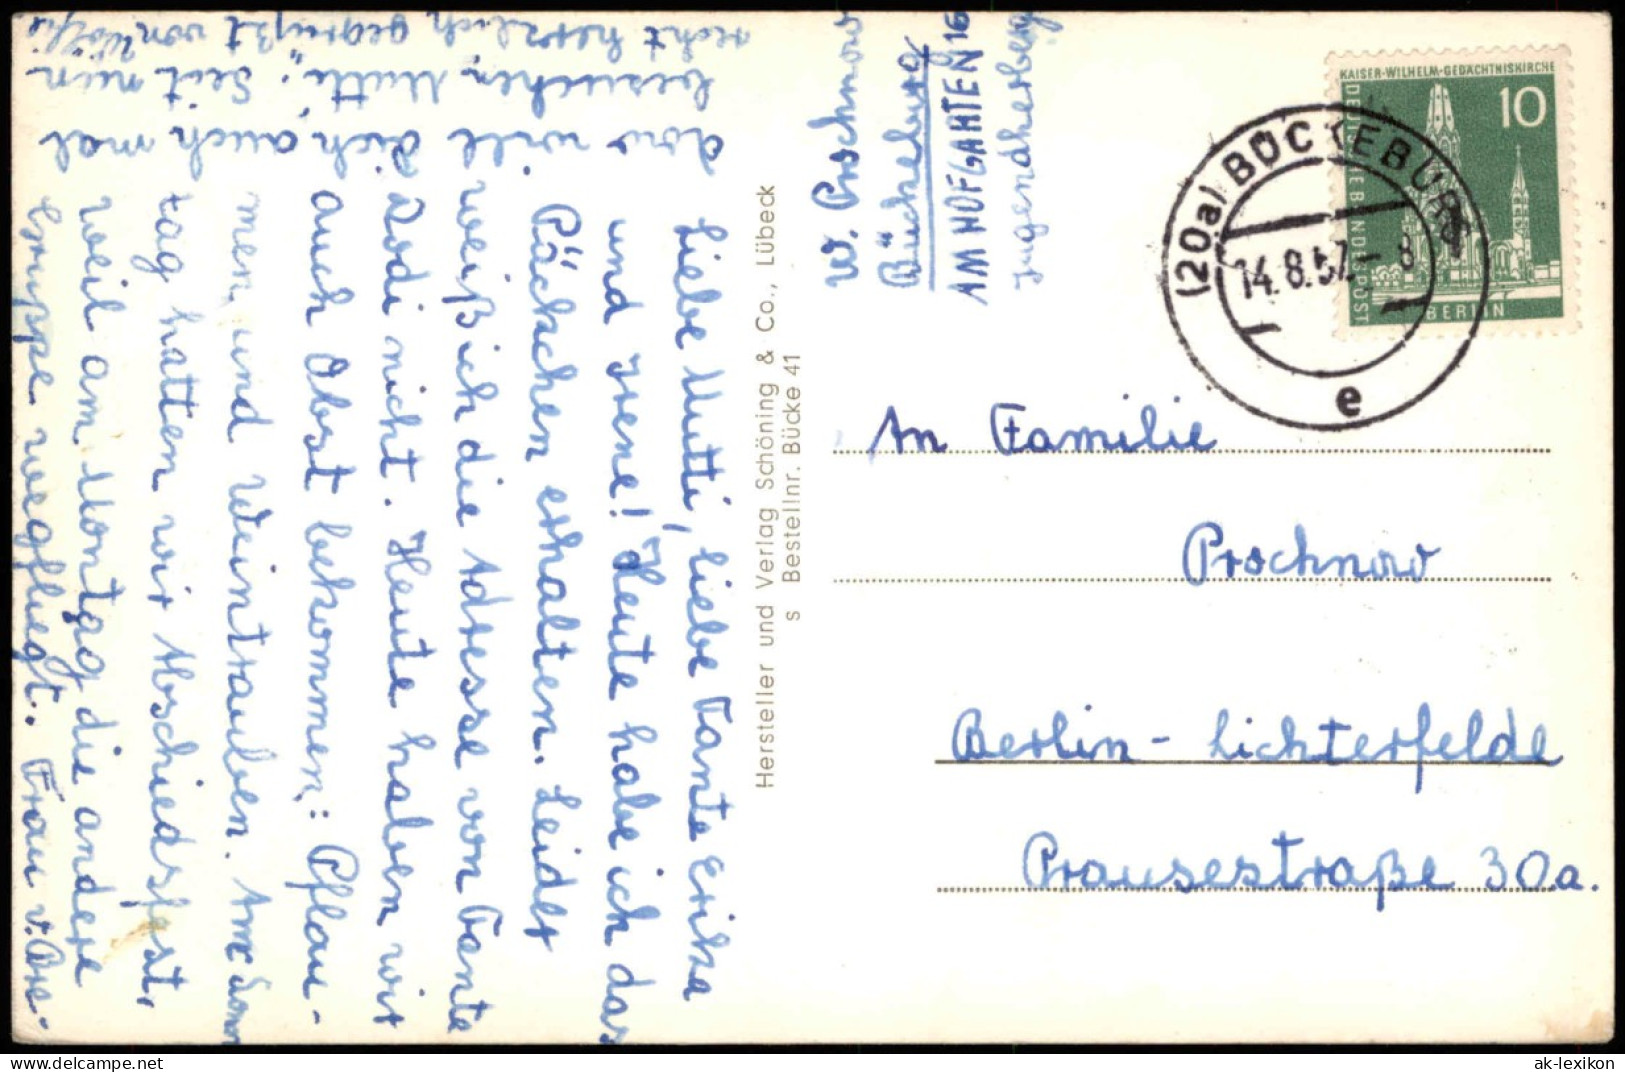 Liebe Mutti, liebe Tante Erika
und Irene! Heute habe ich das
Päckchen erhalten. Leider
weiß ich die Adresse von Tante
Dodi nicht. Heute haben wir
auch Obst bekommen: Pflau-
men und Weintrauben. Am Sonn
tag hatten wir Abschiedsfest,
weil am Montag die andere
Gruppe wegfliegt. Frau v. Bre-
dow will dich auch mal
besuchen, Mutti. Seit nun
recht herzlich gegrüßt von Wölfi
Hersteller und Verlag Schöning & Co., Lübeck
s Bestellnr. Bücke 41
W. Prochnow
Bückeburg
AM HOFGARTEN 16
Jugendherberg
KAISER-WILHELM-GEDÄCHTNISKIRCHE
10
DEUTSCHE BUNDESPOST
BERLIN
(20a) BÜCKEBURG
14.8.57.-8
e
An Familie
Prochnow
Berlin-Lichterfelde
Prausestraße 30a.
delcampe.net
ak-lexikon